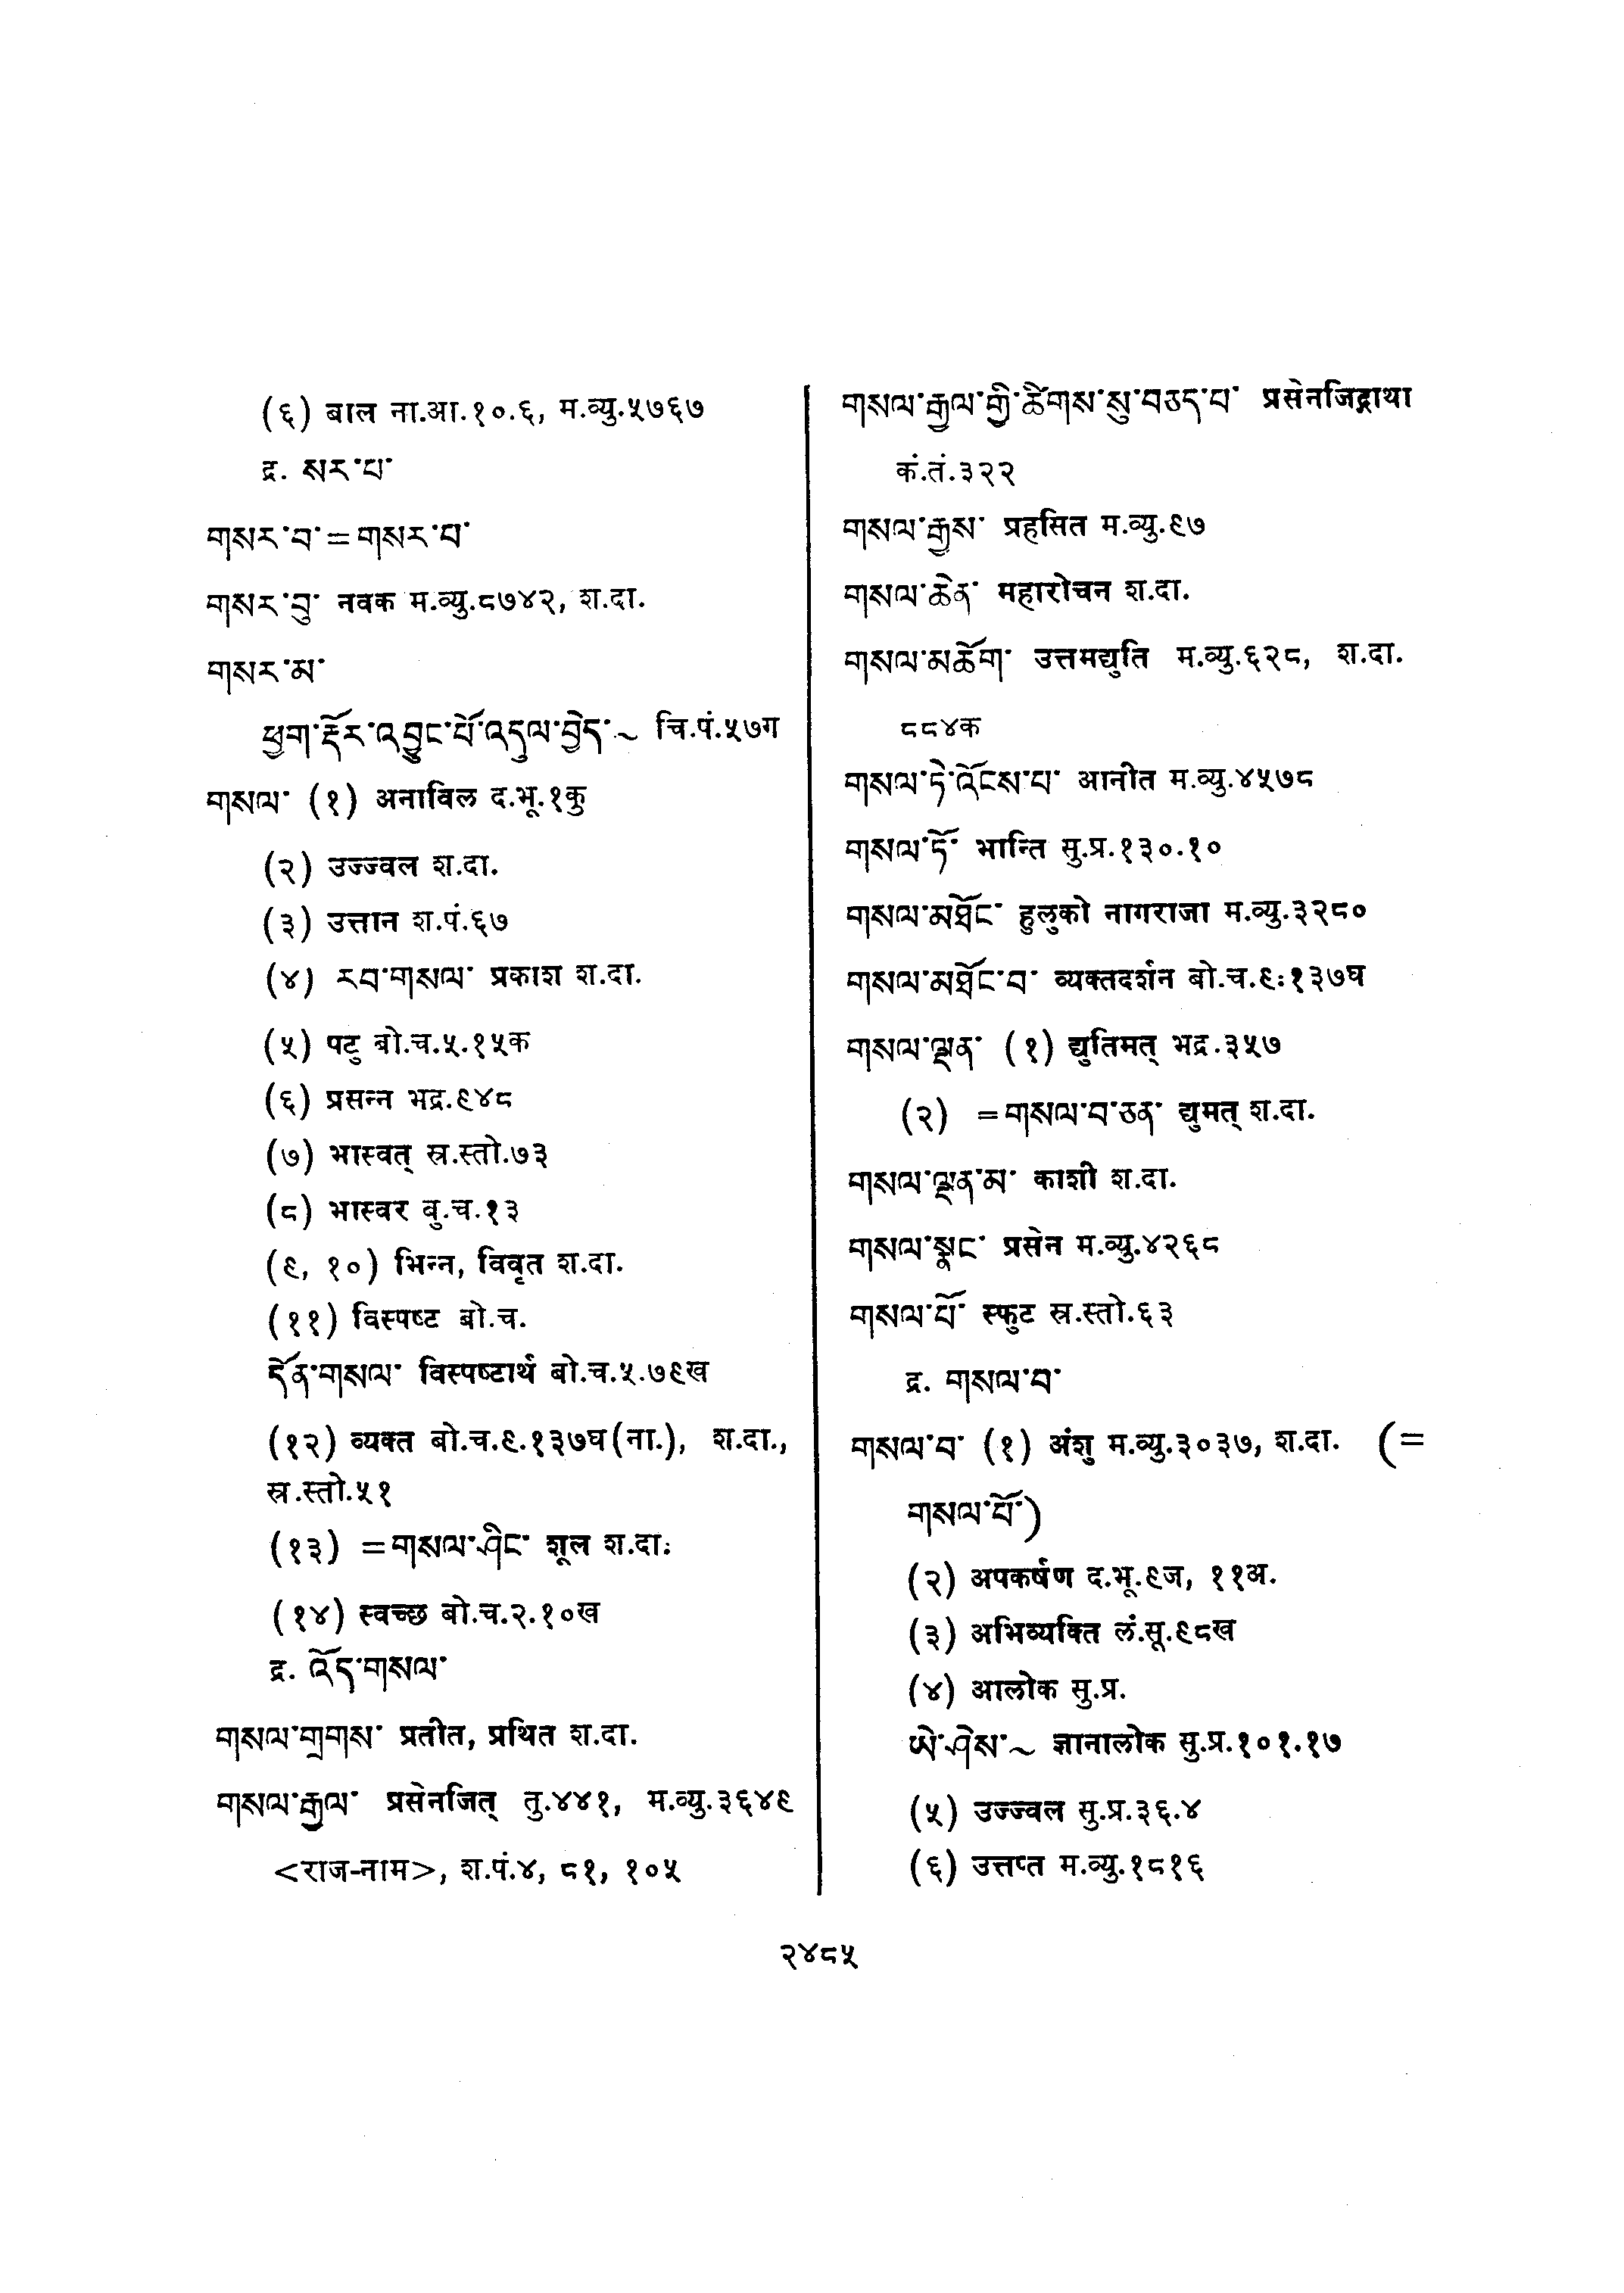 (६) बाल ना.आ.१०.६, म.व्यु.५७६७
द्र. སར་པ་
གསར་བ་=གསར་པ་
གསར་བུ་ नवक म.व्यु.८७४२, श.दा.
གསར་མ་
ཕྱག་རྡོར་འབྱུང་པོ་འདུལ་བྱེད་~ चि.पं.५७ग
གསལ་ (१) अनाविल द.भू.१कु
(२) उज्ज्वल श.दा.
(३) उत्तान श.पं.६७
(४) རབ་གསལ་ प्रकाश श.दा.
(५) पटु बो.च.५.१५क
(६) प्रसन्न भद्र.९४८
(७) भास्वत् स्र.स्तो.७३
(८) भास्वर बु.च.१३
(९, १०) भिन्न, विवृत श.दा.
(११) विस्पष्ट बो.च.
དོན་གསལ་ विस्पष्टार्थ बो.च.५.७९ख
(१२) व्यक्त बो.च.९.१३७घ(ना.), श.दा.,
स्र.स्तो.५१
(१३) =གསལ་ཤིང་ शूल श.दा.
(१४) स्वच्छ बो.च.२.१०ख
द्र. འོད་གསལ་
གསལ་གྲགས་ प्रतीत, प्रथित श.दा.
གསལ་རྒྱལ་ प्रसेनजित् तु.४४१, म.व्यु.३६४९
<राज-नाम>, श.पं.४, ८१, १०५
གསལ་རྒྱལ་གྱི་ཚིགས་སུ་བཅད་པ་ प्रसेनजिद्गाथा
कं.तं.३२२
གསལ་རྒྱས་ प्रहसित म.व्यु.९७
གསལ་ཆེན་ महारोचन श.दा.
གསལ་མཆོག་ उत्तमद्युति म.व्यु.६२८, श.दा.
८८४क
གསལ་ཏེ་འོངས་པ་ आनीत म.व्यु.४५७८
གསལ་ཏོ་ भान्ति सु.प्र.१३०.१०
གསལ་མཐོང་ हुलुको नागराजा म.व्यु.३२८०
གསལ་མཐོང་བ་ व्यक्तदर्शन बो.च.९:१३७घ
གསལ་ལྡན་ (१) द्युतिमत् भद्र.३५७
(२) =གསལ་བ་ཅན་ द्युमत् श.दा.
གསལ་ལྡན་མ་ काशी श.दा.
གསལ་སྣང་ प्रसेन म.व्यु.४२६८
གསལ་པོ་ स्फुट स्र.स्तो.६३
द्र. གསལ་བ་
གསལ་བ་ (१) अंशु म.व्यु.३०३७, श.दा. (=
གསལ་པོ་)
(२) अपकर्षण द.भू.९ज, ११अ.
(३) अभिव्यक्ति लं.सू.९८ख
(४) आलोक सु.प्र.
ཡེ་ཤེས་~ ज्ञानालोक सु.प्र.१०१.१७
(५) उज्ज्वल सु.प्र.३६.४
(६) उत्तप्त म.व्यु.१८१६
२४८५